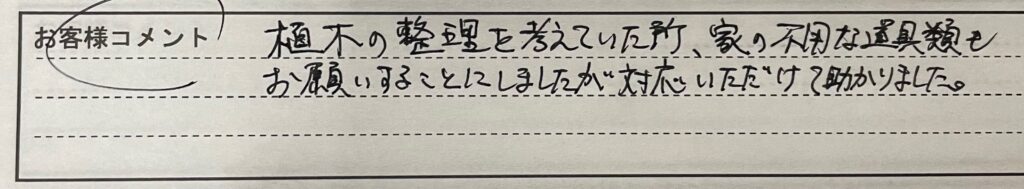 お客様コメント 植木の整理を考えていた所、家の不用な道具類も
お願いすることにしましたが対応いただけて助かりました。